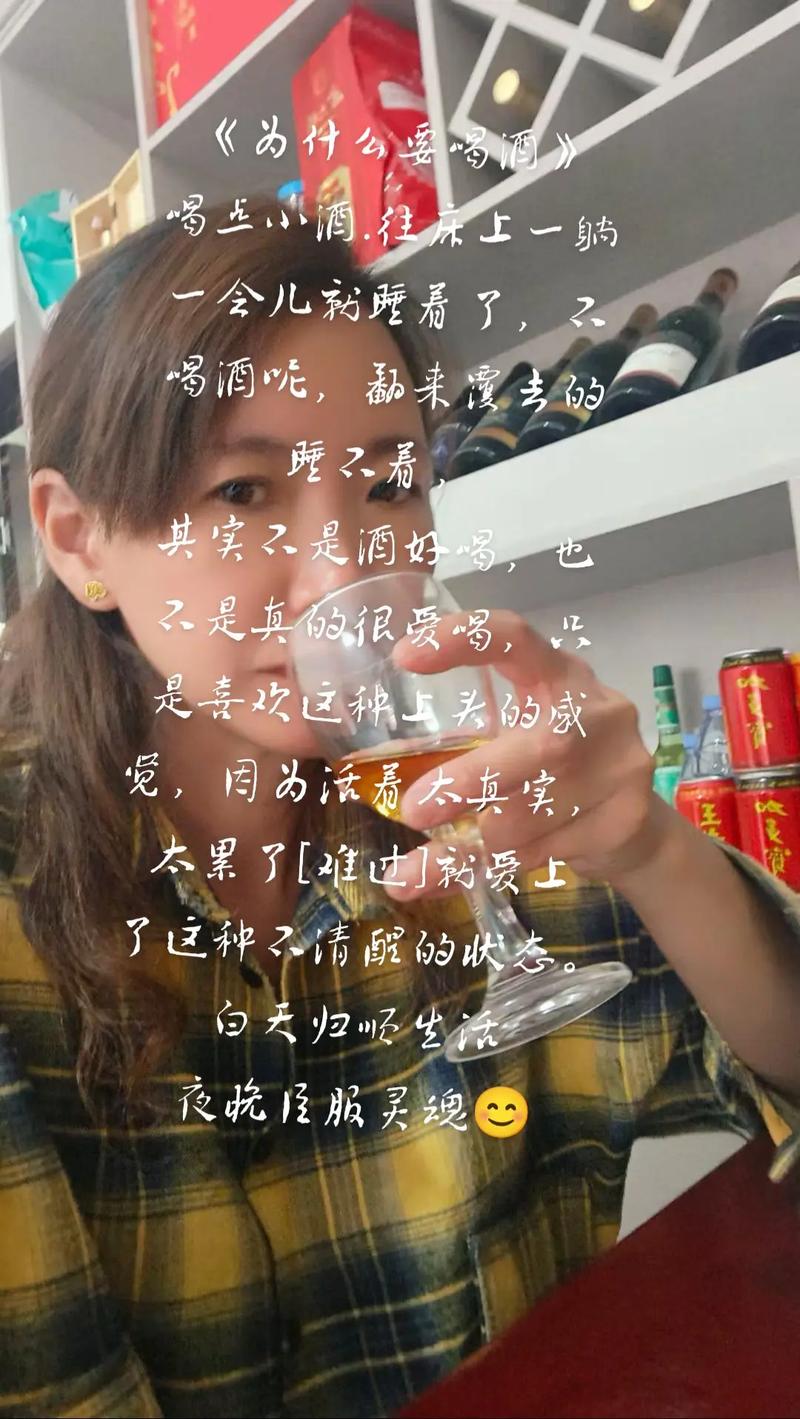 《为什么要喝酒》
喝点小酒.往床上一躺
一会儿就睡着了，不
喝酒呢，翻来覆去的
睡不着，
其实不是酒好喝，也
不是真的很爱喝，只
是喜欢这种上头的感
觉，因为活着太真实，
太累了[难过]就爱上
了这种不清醒的状态。
白天归顺生活
夜晚臣服灵魂😊
加多宝
王
加多宝